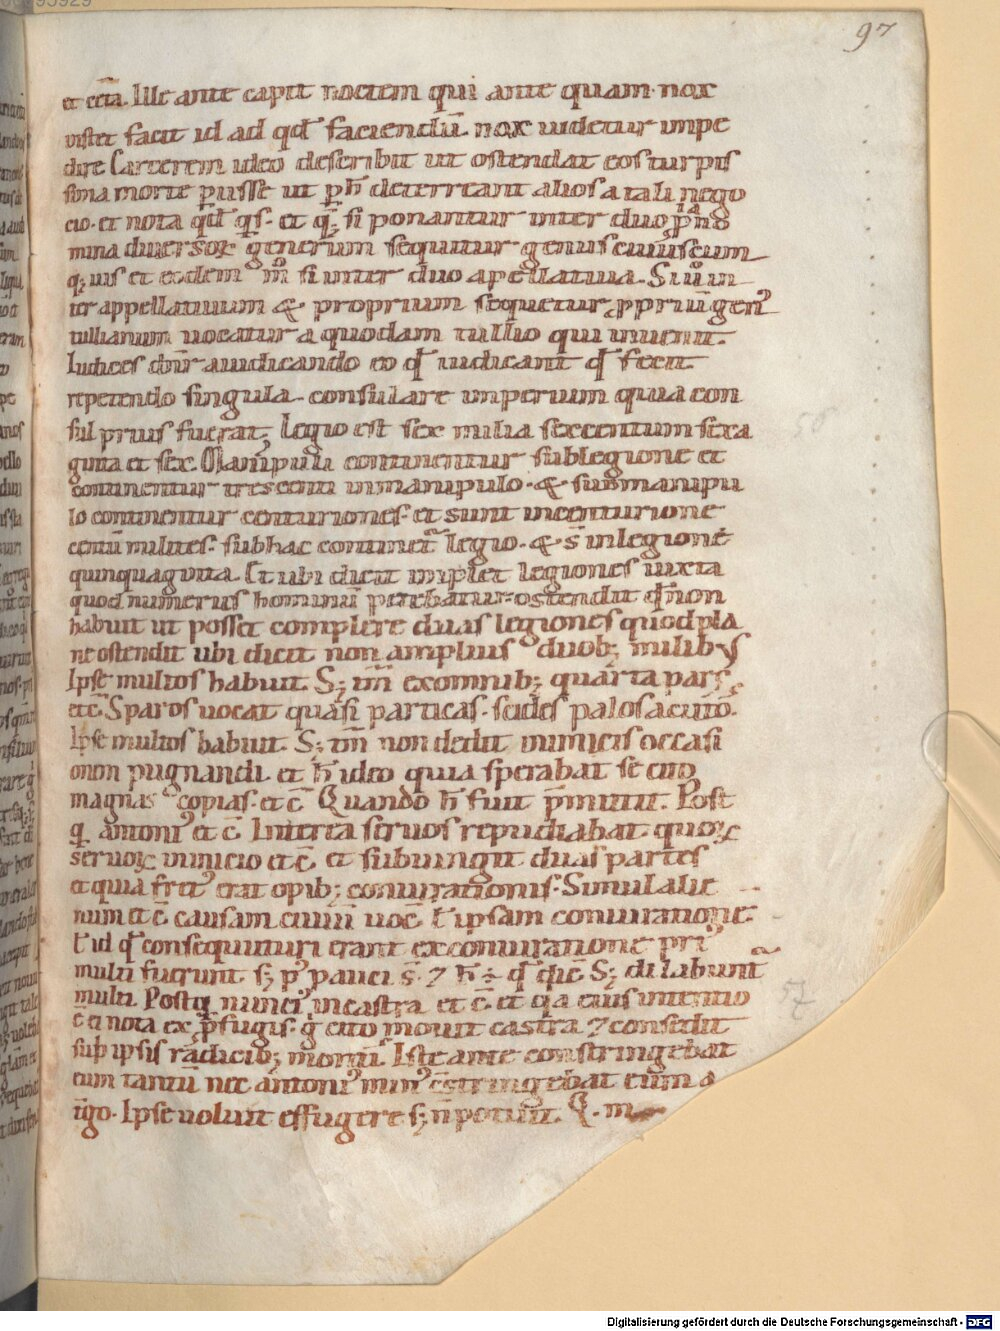 97
et cet̄a. Ille ante capit noctem qui ante quam nox
instet facit id ad qđ faciendū nox uidetur inpe
dire Carcerem ideo describit ut ostendat eos turpis
sima morte perisse ut p h̄ deterreant alios a tali nego
cio. et nota qđ qs. et q; si ponantur inter duo p̄no
mina diuersoꝝ generum sequitur genus cuiuscum
q; uis et eodem m̊ si inter duo apellatiua. Si ů in
ter appellatiuum & proprium sequetur ppriū gen᾽
tullianum uocatur a quodam tullio qui inuenit.
Iudices dn̄r a iudicando eo qđ iudicant qđ fecit
repetendo singula. consulare imperium quia con
sul prius fuerat; Legio est sex milia sexcentum sexa
ginta et sex. Manipuli continentur sub legione et
continentur trescenti in manipulo. & sub manipu
lo continentur centuriones. et sunt in centurione
centū milites. sub hac continet᷑ legio. & s̄ in legione
quinquaginta. Et ubi dicit inplet legiones iuxta
quod numerus hominū petebatur ostendit qđ non
habuit ut posset complere duas legiones quod pla
ne ostendit ubi dicit non amplius duob; milibus
Ipse multos habuit. S; tm̄ ex omnib; quarta pars
etc̄ Sparos uocat quasi particas. scides palos acutos.
Ipse multos habuit. S; tm̄ non dedit inimicis occasi
onem pugnandi et h̄ ideo quia sperabat se cito
magnas copias. et c̄ Quando h̄ fuit p̄mitit. Post
q̄ antoni᾽ et c̄ Interea seruos repudiabat quoꝝ
seruoꝝ inicio et c̄ et subiungit duas partes
et quia fret᾽ erat opib; coniurationis. Simul alie
num et c̄ causam ciuiū uoc̄ ł ipsam coniurationē.
ł id qđ consequuturi erant ex coniuratione pri᾽
multi fuerunt s; p᾽ pauci s̄. 7 h̄ ÷ qđ dic̄ S; dilabunt᷑
multi. Postq̄ nunci᾽ in castra et c̄ et q̄a eius intentio
c̄ et nota ex p̄fugis. g̊ cito mouit castra 7 consedit
sub ipsis radicib; montiū. Iste ante constringebat
eum tantū nec antoni᾽ min᾽ cstringebat eum a
tgo. Ipse uoluit effugere s; n̄ potuit. Q. m
56
57
Digitalisierung gefördert durch die Deutsche Forschungsgemeinschaft - DFG